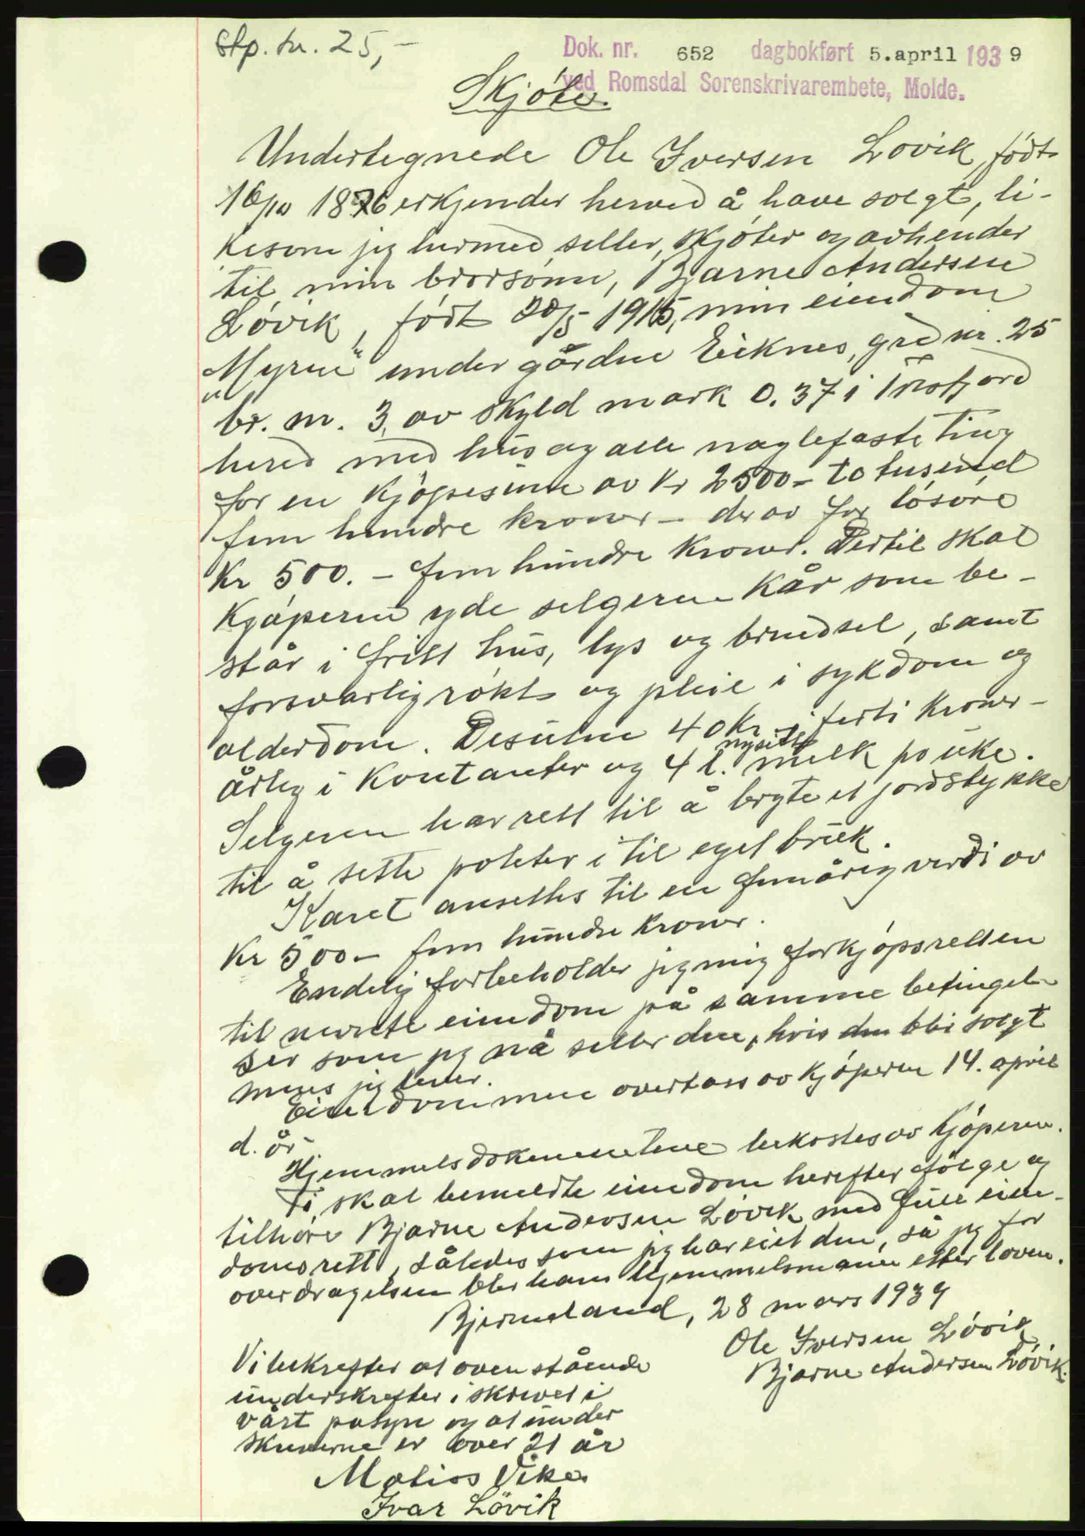 Stp. kr. 25,-
Dok. nr. 652 dagbokført 5.april 1939
ved Romsdal Sorenskrivarembete, Molde.
Skjøte.
Undertegnede Ole Iversen Løvik, født
16/10 1876 erkjender herved å have solgt, li-
kesom jeg hermed seller, skjøter og avhender
til min brorsønn, Bjarne Andersen
Løvik, født 20/5 1915, min eiendom
"Myren" under gården Eiknes, grd nr. 25
br. nr. 3, av skyld mark 0.37 i Tresfjord
hered med hus og alle naglefaste ting
for en kjøpesum av kr 2500- to tusend
fem hundre kroner - derav for løsøre
Kr 500.- fem hundre kroner. Dertil skal
Kjøperen yde selgeren Kår som be-
står i fritt hus, lys og brendsel, samt
forsvarlig røkt og pleie i sykdom og
alderdom. Desuten 40 kr - firti kroner -
årlig i kontanter og 4 l. nysilt melk pr uke.
Selgeren har rett til å bryte et jordstykke
til å sette poteter i til eget bruk.
Karet ansettes til en femårig verdi av
Kr 500- fem hundre kroner.
Endelig forbeholder jeg mig forkjøpsretten
til nevnte eiendom på samme betingel-
ser som jeg nå seller den, hvis den blir solgt
mens jeg lever.
Eiendommen overtass av kjøperen 14. april
d. år.
Hjemmelsdokumentene bekostes av kjøperen.
Ti skal bemeldte eiendom herefter følge og
tilhøre Bjarne Andersen Løvik med full eien-
domsrett, således som jeg har eiet den, så jeg for
overdragelsen blir hans hjemmelsmann etter loven.
Bjermeland, 28 mars 1939
Ole Iversen Løvik
Bjarne Andersen Løvik.
Vi bekrefter at ovenstående
underskrefter i skrevet i
vårt påsyn og at under
skriverne er over 21 år
Matias Vike
Ivar Løvik